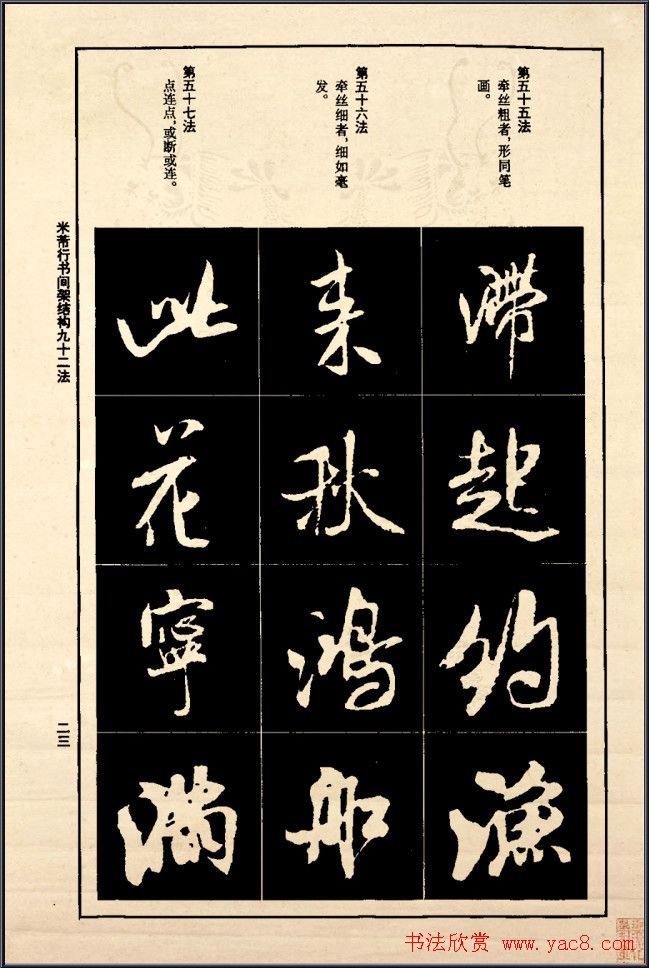 第五十五法
牵丝粗者，形同笔
画。
滞
起
约
渔
第五十六法
牵丝细者，细如毫
发。
来
秋
鸿
船
第五十七法
点连点，或断或连。
此
花
宁
满
米芾行书间架结构九十二法
二三
书法欣赏 www.yac8.com